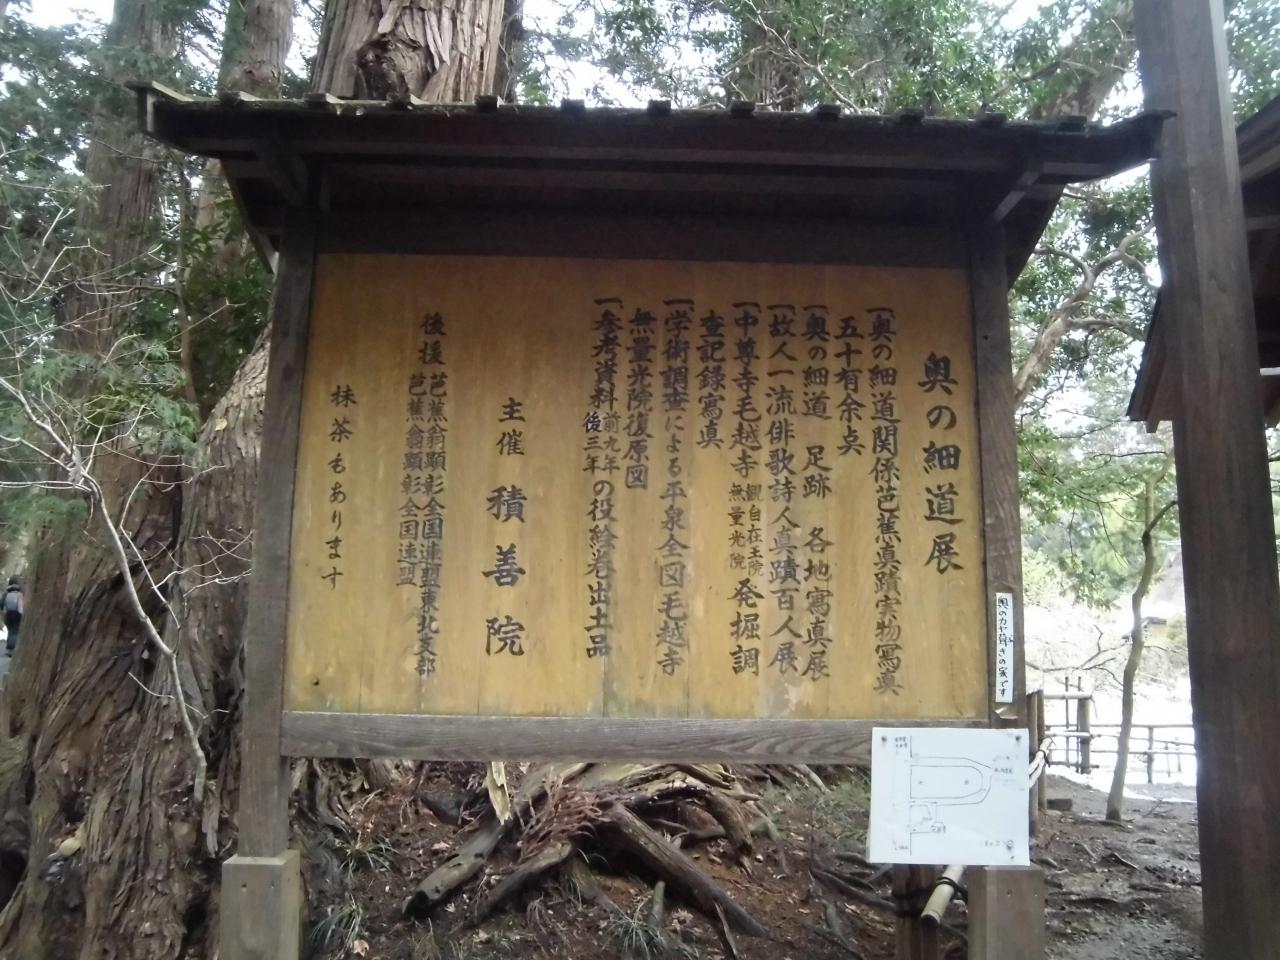 奥の細道展
一、奥の細道関係芭蕉真蹟実物寫眞
五十有余点
一、奥の細道 足跡 各地寫真展
一、故人一流俳歌詩人真蹟百人展
一、中尊寺毛越寺 観自在王院 無量光院 発掘調
査記録寫眞
一、学術調査による平泉全図毛越寺
無量光院復原図
一、参考資料 前九年 後三年 の役絵巻出土品
主催 積善院
後援 芭蕉翁顕彰全国連盟東北支部
芭蕉翁顕彰全国連盟
抹茶もあります
奥のカヤ葺きの家です